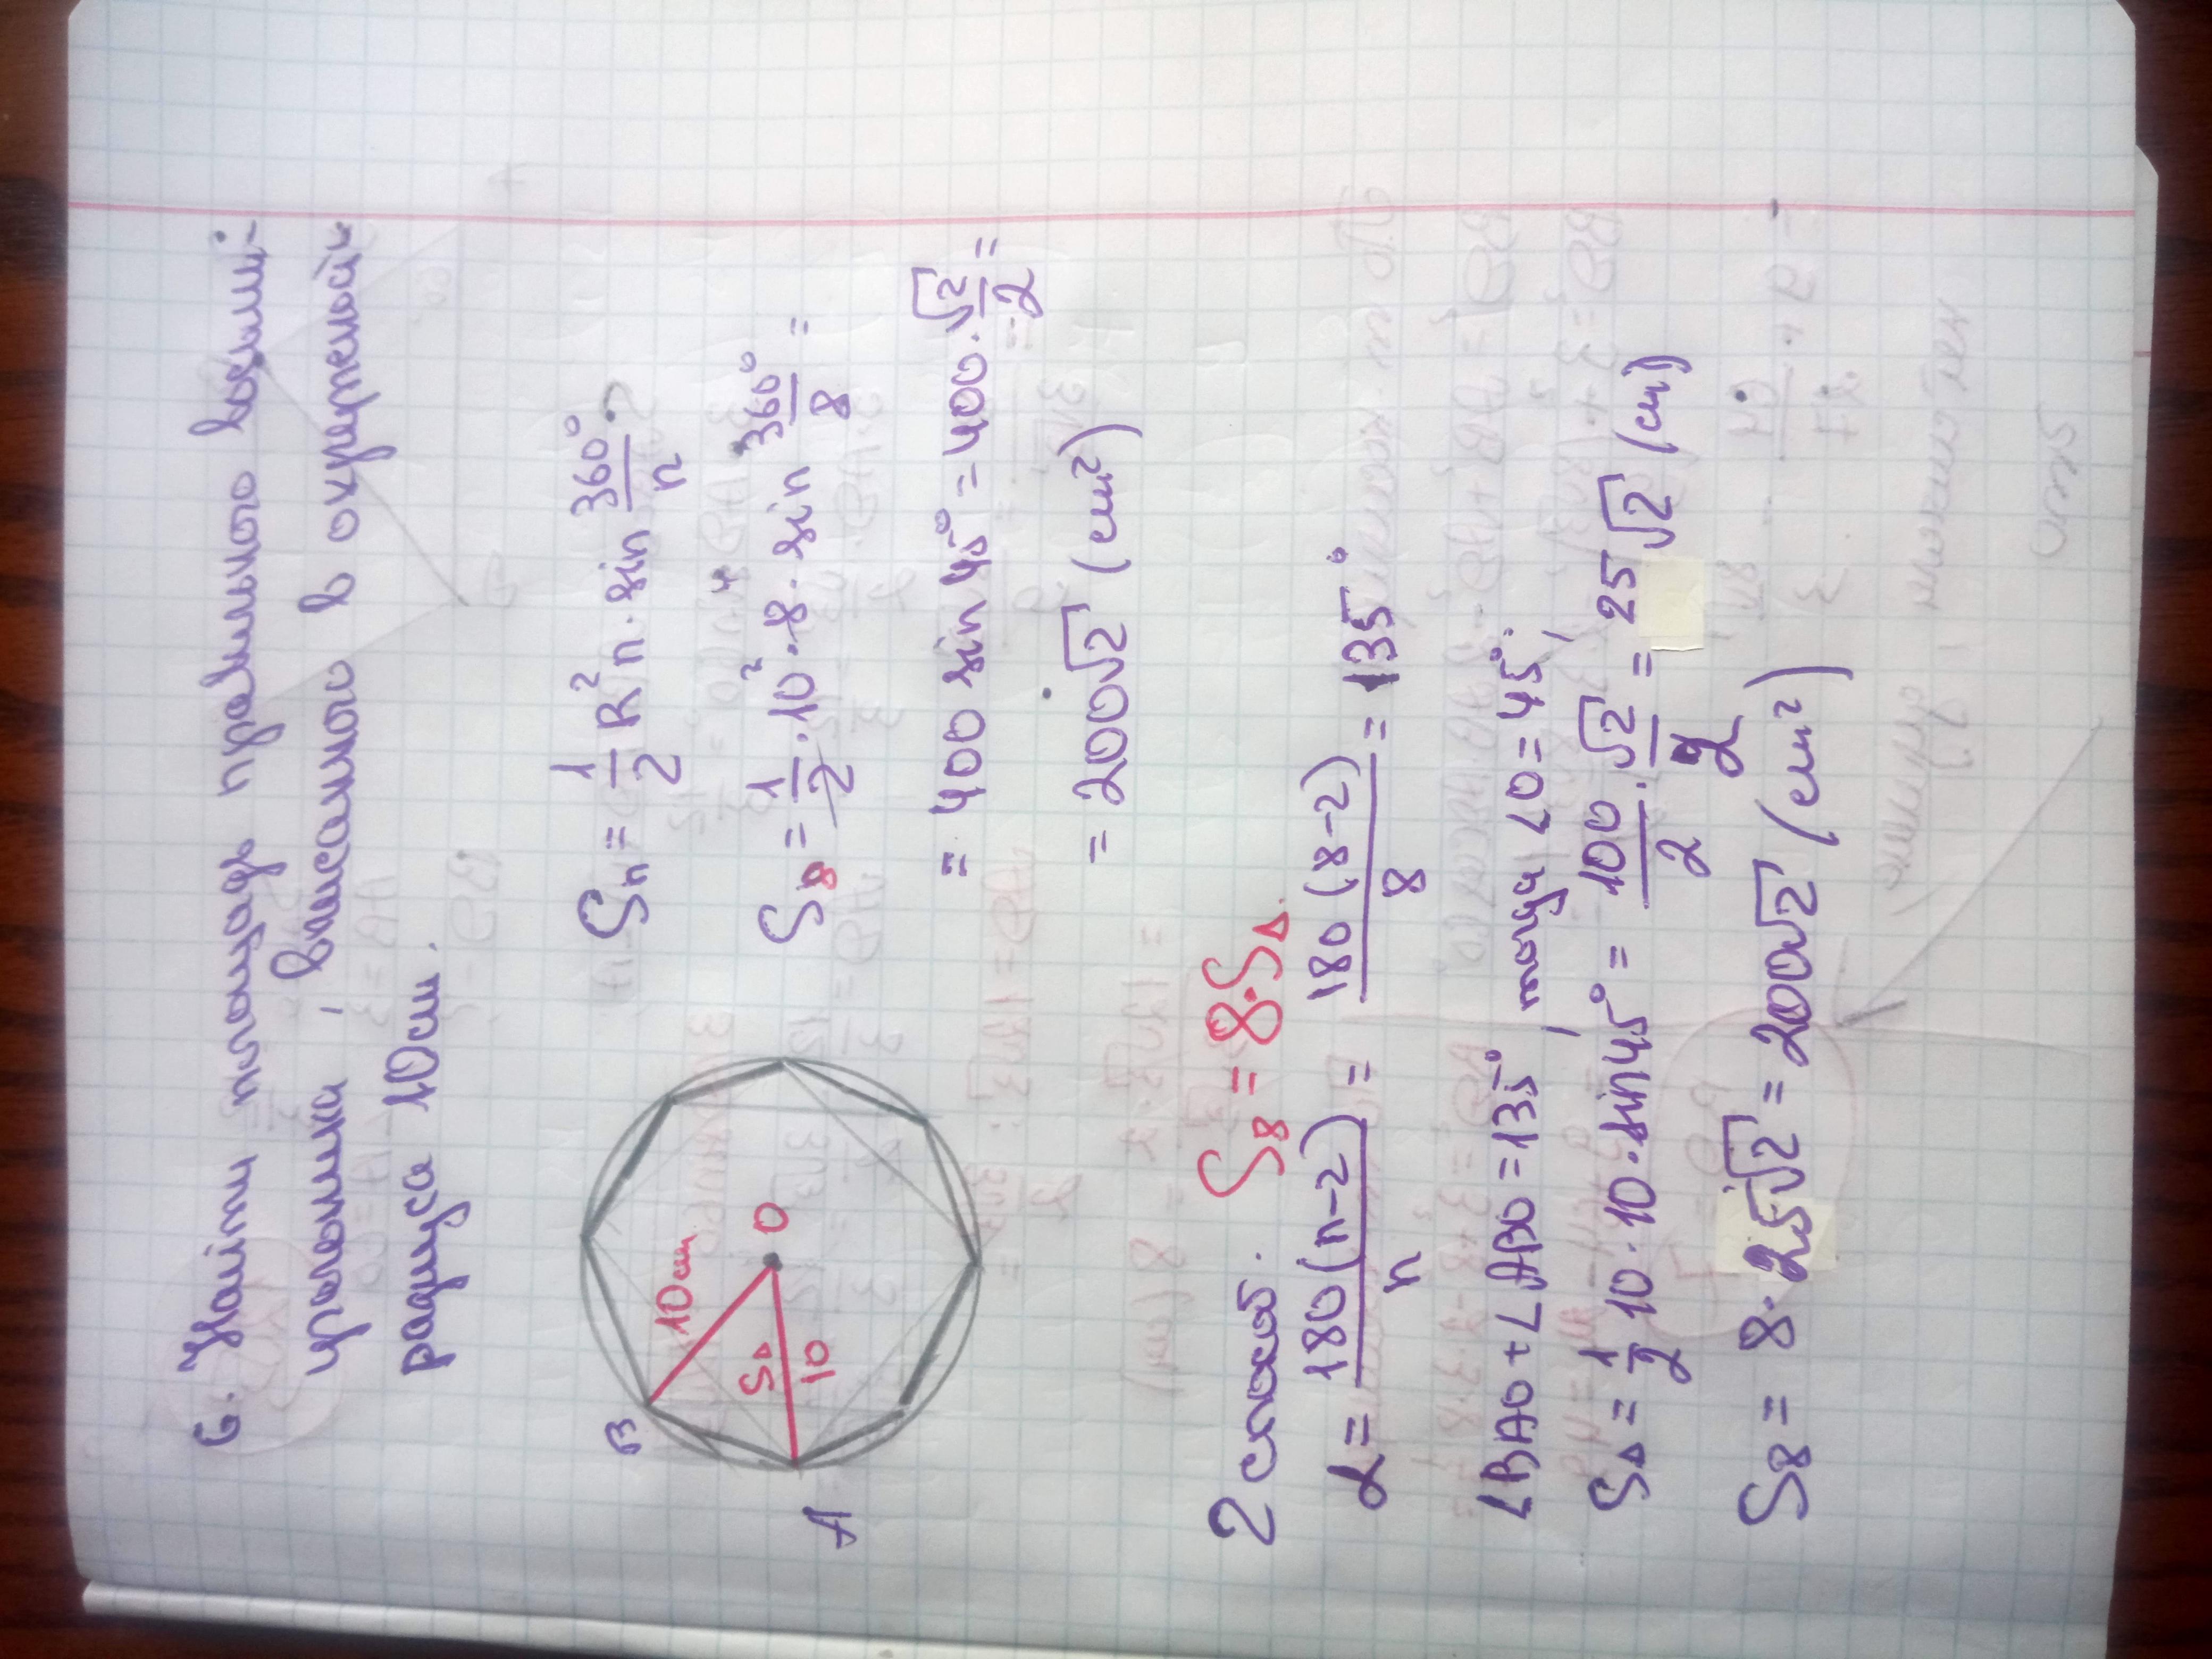 6. Найти площадь правильного восьми-
угольника, вписанного в окружность
радиуса 10см.
B
10см
O
S△
10
A
Sn = 1/2 R² n · sin 360°/n
S8 = 1/2 · 10² · 8 · sin 360°/8 =
= 400 sin 45° = 400 · √2/2 =
= 200√2 (см²)
2 способ. S8 = 8·S△
α = 180(n-2)/n = 180(8-2)/8 = 135°
∠BAO + ∠ABO = 135°, тогда ∠O = 45°;
S△ = 1/2 10 · 10 · sin45° = 100/2 · √2/2 = 25√2 (см)
S8 = 8 · 25√2 = 200√2 (см²)